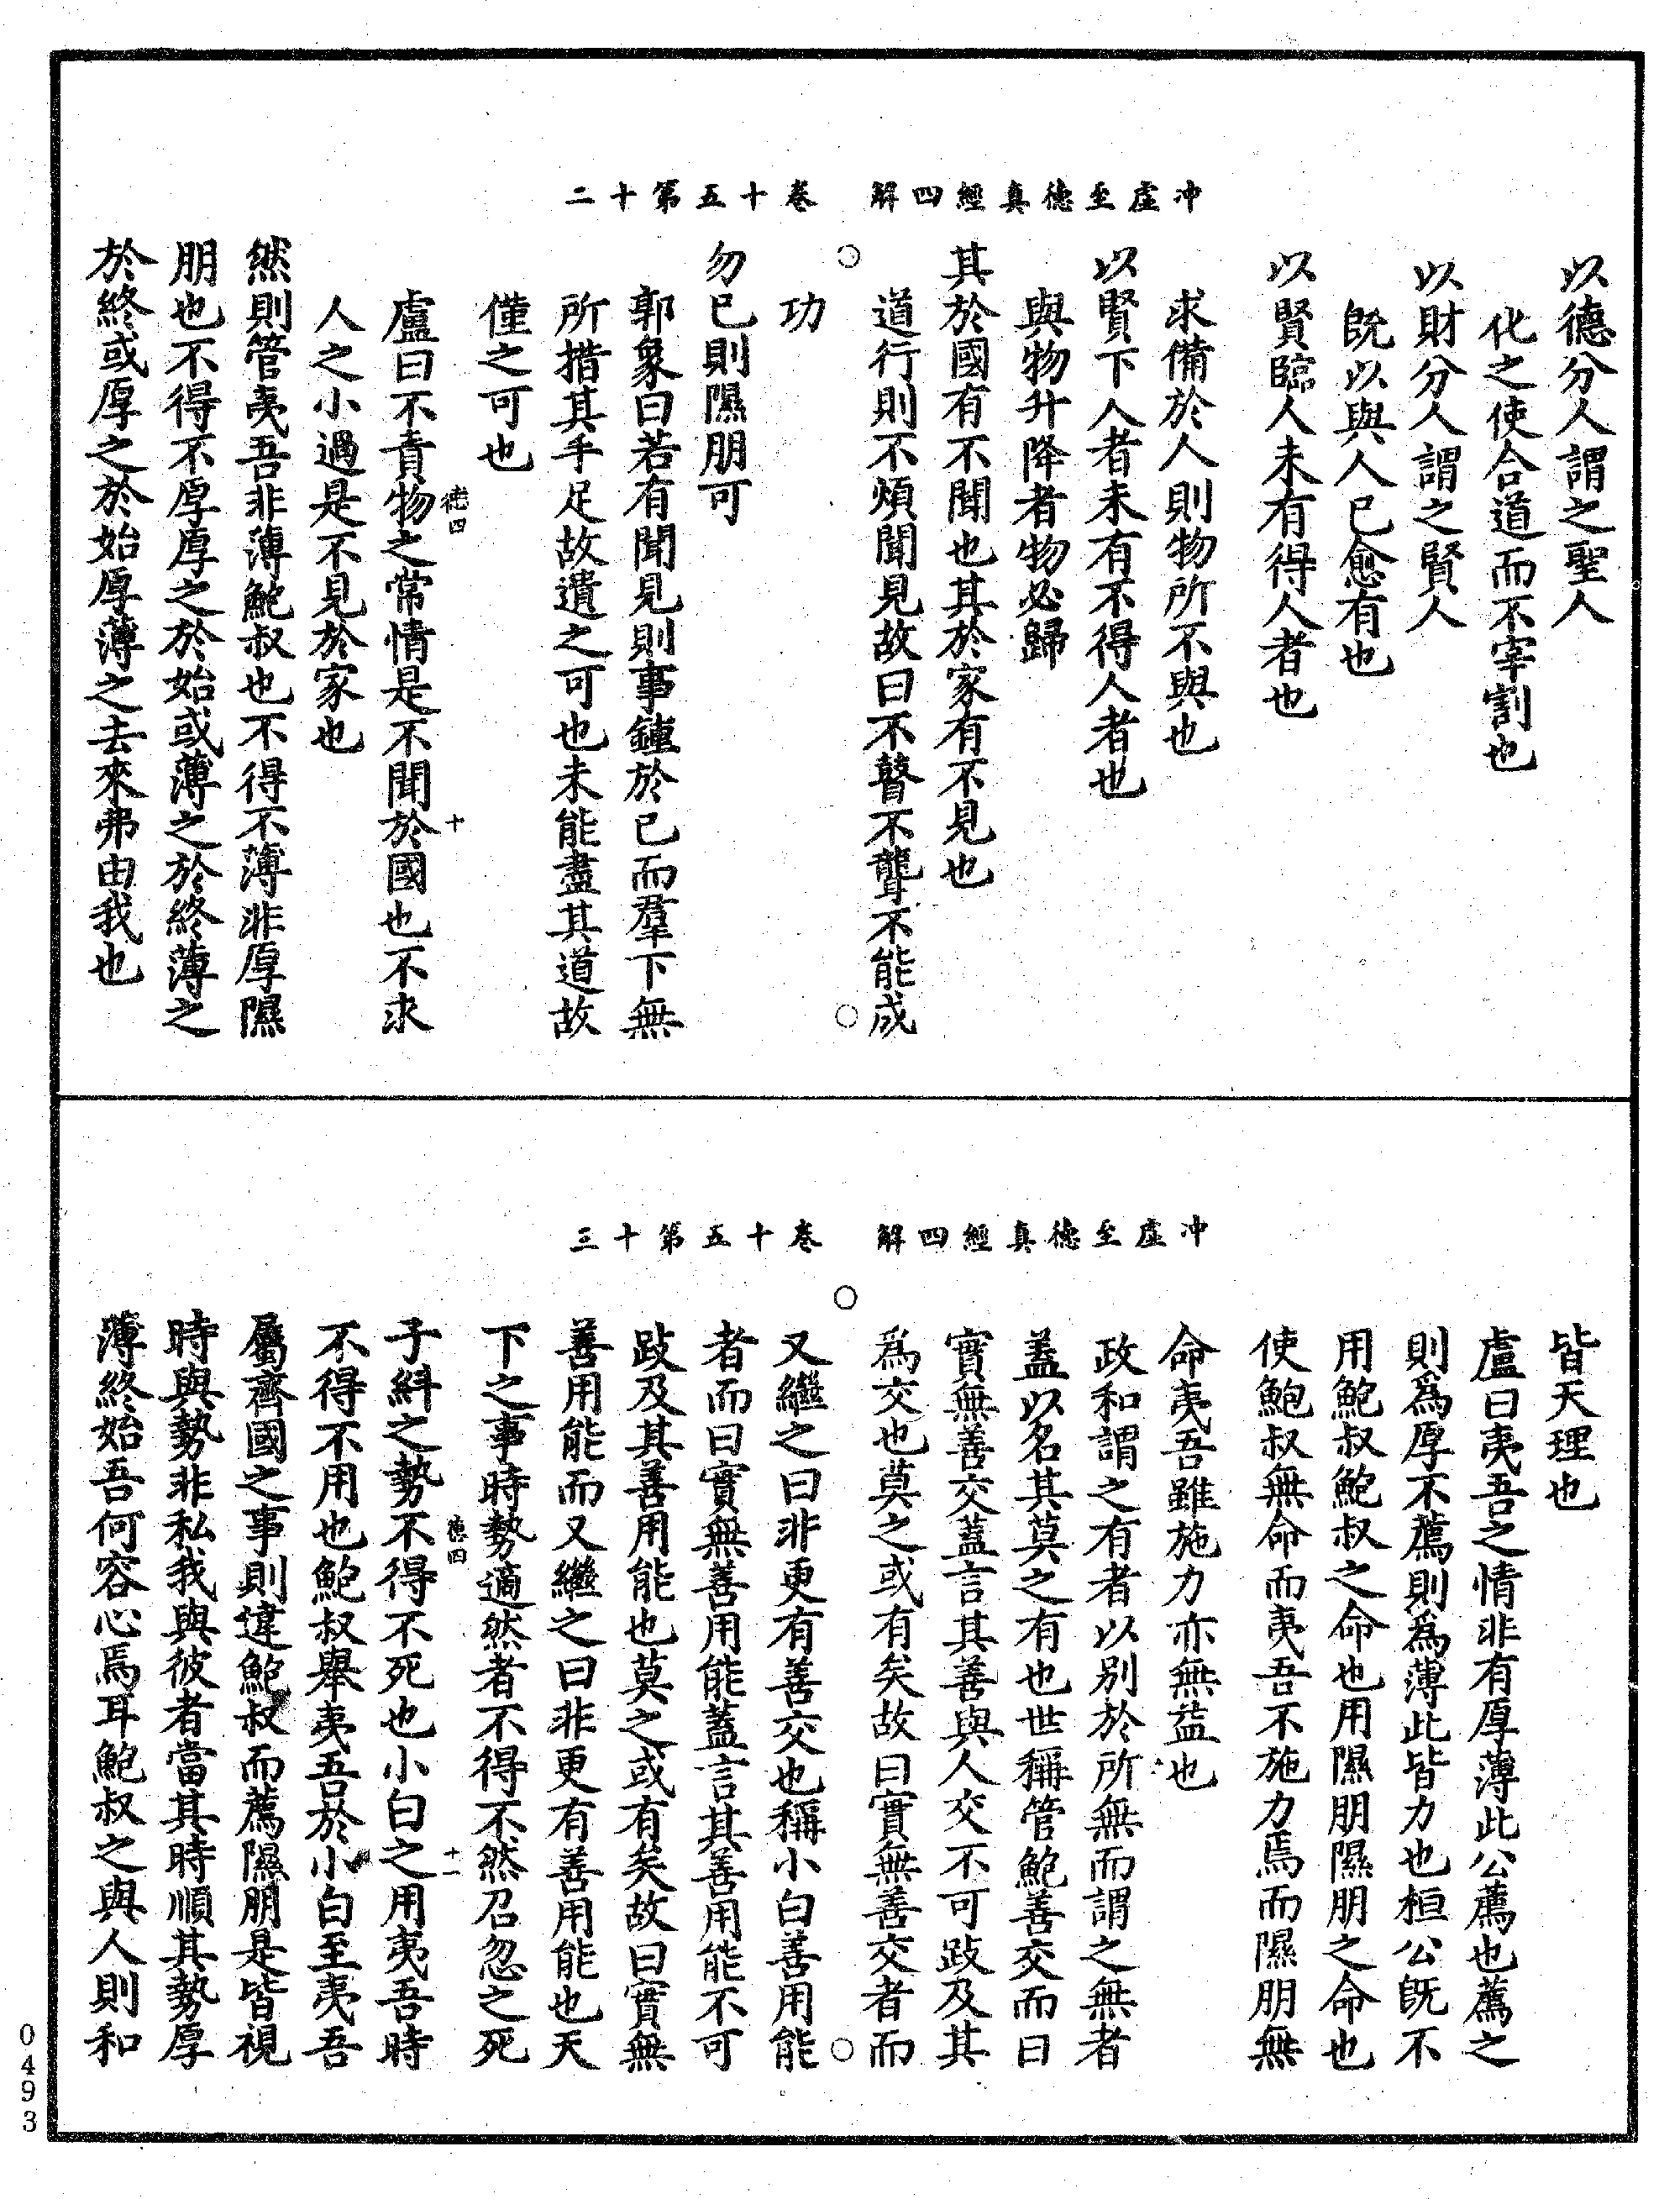 冲虛至德真經四解　卷十五第十二
以德分人謂之聖人
化之使合道而不宰割也
以財分人謂之賢人
既以與人已愈有也
以賢臨人未有得人者也
求備於人則物所不與也
以賢下人者未有不得人者也
與物升降者物必歸
其於國有不聞也其於家有不見也
道行則不煩聞見故曰不瞽不聾不能成
功
勿已則隰朋可
郭象曰若有聞見則事鍾於己而羣下無
所措其手足故遺之可也未能盡其道故
僅之可也
德四
十
盧曰不責物之常情是不聞於國也不求
人之小過是不見於家也
然則管夷吾非薄鮑叔也不得不薄非厚隰
朋也不得不厚厚之於始或薄之於終薄之
於終或厚之於始厚薄之去來弗由我也
冲虛至德真經四解　卷十五第十三
皆天理也
盧曰夷吾之情非有厚薄此公薦也薦之
則爲厚不薦則爲薄此皆力也桓公既不
用鮑叔鮑叔之命也用隰朋隰朋之命也
使鮑叔無命而夷吾不施力焉而隰朋無
命夷吾雖施力亦無益也
政和謂之有者以別於所無而謂之無者
蓋以名其莫之有也世稱管鮑善交而曰
實無善交蓋言其善與人交不可跂及其
爲交也莫之或有矣故曰實無善交者而
又繼之曰非更有善交也稱小白善用能
者而曰實無善用能蓋言其善用能不可
跂及其善用能也莫之或有矣故曰實無
善用能而又繼之曰非更有善用能也天
下之事時勢適然者不得不然召忽之死
德四
十一
子糾之勢不得不死也小白之用夷吾時
不得不用也鮑叔舉夷吾於小白至夷吾
屬齊國之事則違鮑叔而薦隰朋是皆視
時與勢非私我與彼者當其時順其勢厚
薄終始吾何容心焉耳鮑叔之與人則和
0493